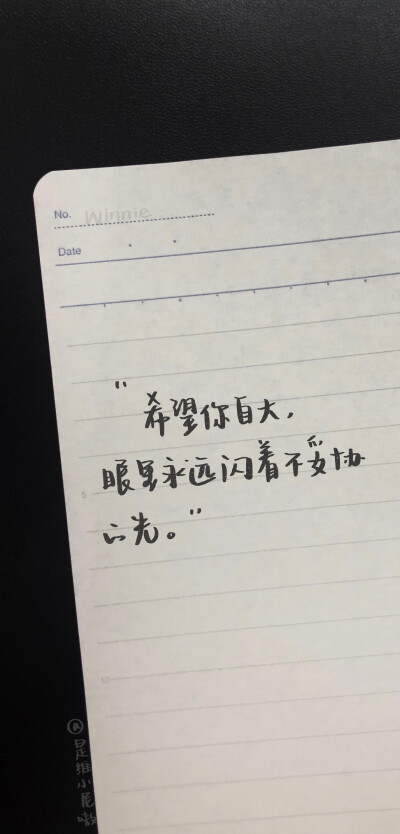 No. Winnie
Date
"希望你自大,
眼里永远闪着不妥协
的光。"
@是维小尼呦